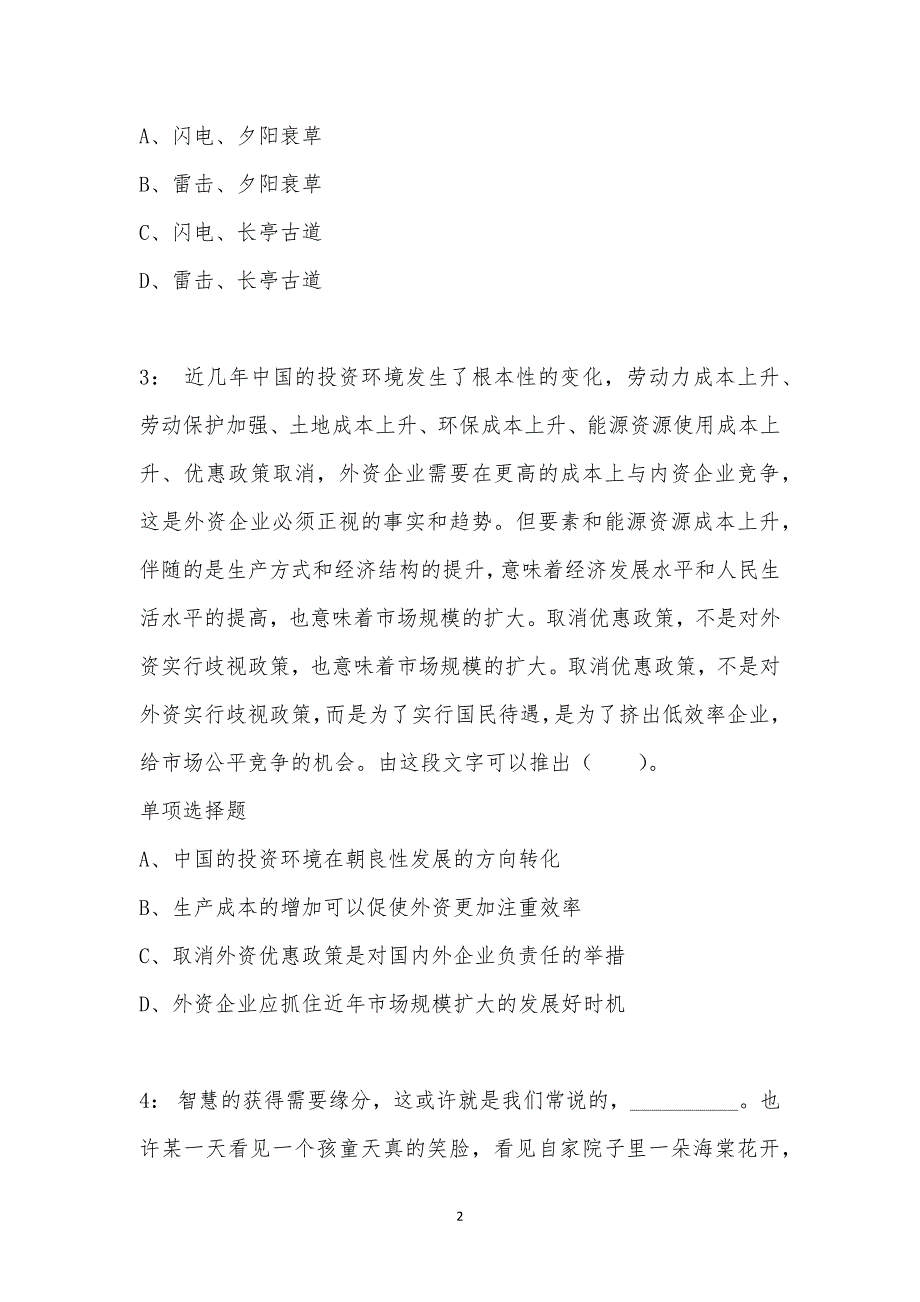 A、闪电、夕阳衰草
B、雷击、夕阳衰草
C、闪电、长亭古道
D、雷击、长亭古道
3： 近几年中国的投资环境发生了根本性的变化，劳动力成本上升、
劳动保护加强、土地成本上升、环保成本上升、能源资源使用成本上
升、优惠政策取消，外资企业需要在更高的成本上与内资企业竞争，
这是外资企业必须正视的事实和趋势。但要素和能源资源成本上升，
伴随的是生产方式和经济结构的提升，意味着经济发展水平和人民生
活水平的提高，也意味着市场规模的扩大。取消优惠政策，不是对外
资实行歧视政策，也意味着市场规模的扩大。取消优惠政策，不是对
外资实行歧视政策，而是为了实行国民待遇，是为了挤出低效率企业，
给市场公平竞争的机会。由这段文字可以推出（　　）。
单项选择题
A、中国的投资环境在朝良性发展的方向转化
B、生产成本的增加可以促使外资更加注重效率
C、取消外资优惠政策是对国内外企业负责任的举措
D、外资企业应抓住近年市场规模扩大的发展好时机
4： 智慧的获得需要缘分，这或许就是我们常说的，__________。也
许某一天看见一个孩童天真的笑脸，看见自家院子里一朵海棠花开，
2